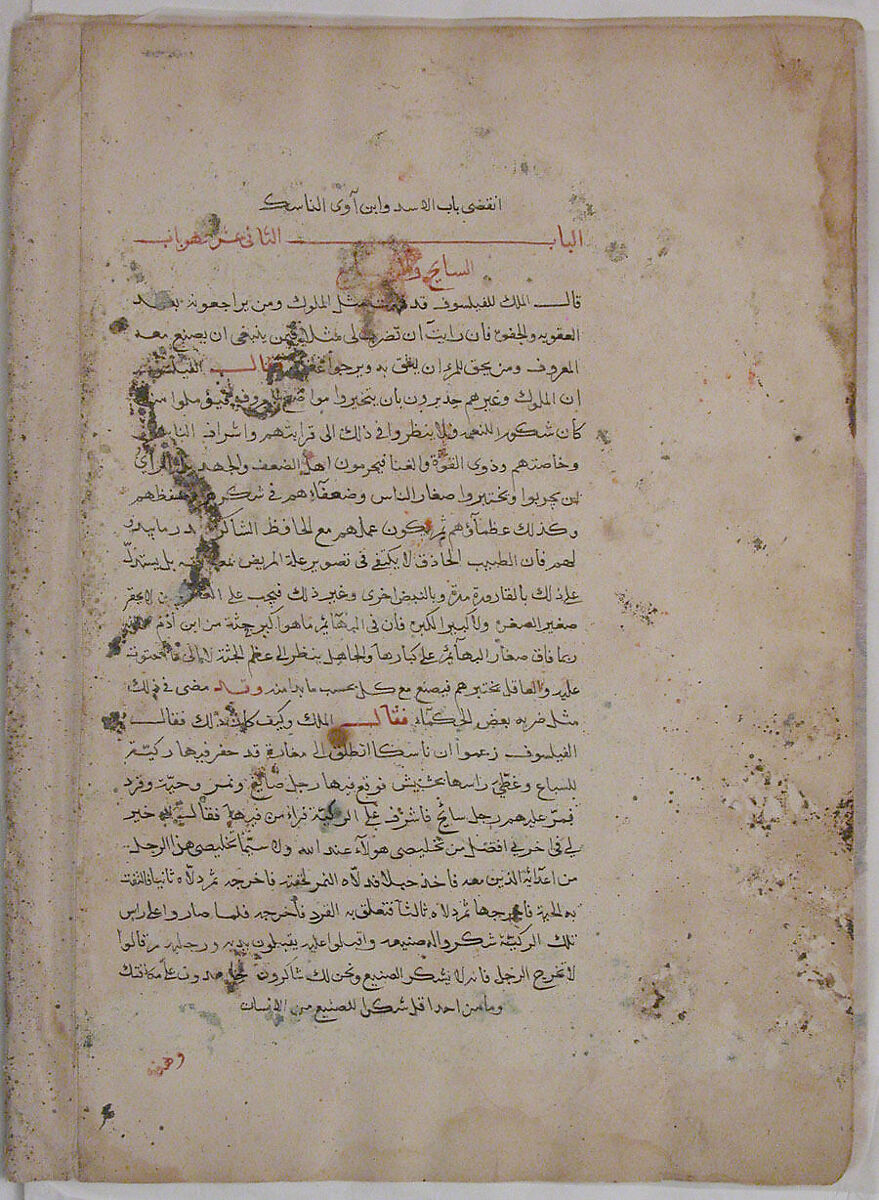 انقضى باب الاسد وابن آوى الناسك
الباب الثانى عشر وهو باب
السايح والصايغ
قال الملك للفيلسوف قد فهمت مثل الملوك ومن يراجعونه بعد
العقوبه والجفوه فان رايت ان تضرب لى مثلا فيمن ينبغى ان يصنع معه
المعروف ومن يحق للمرء ان يثق به ويرجوا قال الفيلسوف
ان الملوك وغيرهم جديرون بان يتخيروا مواضع
كان شكورا للنعمه ولا ينظروا فى ذلك الى قرابتهم واشراف الناس
وخاصتهم وذوى القوة والغنا فيحرمون اهل الضعف والجهد الراى
ان يجربوا ويختبروا صغار الناس وضعفآءهم فى شكرهم وحفظهم
وكذلك عظمآؤهم ثم يكون عملهم مع الحافظ الشاكر
لهم فان الطبيب الحاذق لا يكتفى فى تصوير علة المريض بل يستدل
على ذلك بالقارورة مرة وبالنبض اخرى وغير ذلك فيجب على ان لا يحقر
صغيرا لصغره ولا كبيرا لكبره فان فى البهآئم ما هو اكبر جثة من ابن ادم
ربما فاق صغار البهآئم على كبارها والجاهل ينظر الى عظم الجثة لا الى
عليه والعاقل يختبرهم فيصنع مع كل بحسب ما بدا منه وقد مضى فى ذلك
مثل ضربه بعض الحكمآء فقال الملك وكيف كان ذلك فقال
الفيلسوف زعموا ان ناسكا انطلق الى مغارة قد حفر فيها ركية
للسباع وغطى راسها بحشيش فوقع فيها رجل صايغ ونمر وحية وقرد
فمر عليهم رجل سايح فاشرف على الركية فراء من فيها فقال لا خير
لى فى اخرتى افضل من تخليصى هولآء عند الله ولا سيما تخليصى هذا الرجل
من اعدائه الذين معه فاخذ حبلا فدلاه النمر لخفته فاخرجه ثم دلاه ثانيا فالتفت
به الحية فاخرجها ثم دلاه ثالثا فتعلق به القرد فاخرجه فلما صاروا على راس
تلك الركية شكروا له صنيعه واقبلوا عليه يقبلون يديه ورجليه وقالوا
لا تخرج الرجل فانه لا يشكر الصنيع ونحن لك شاكرون على مكانتك
وما من احد اقل شكرا للصنيع من الانسان